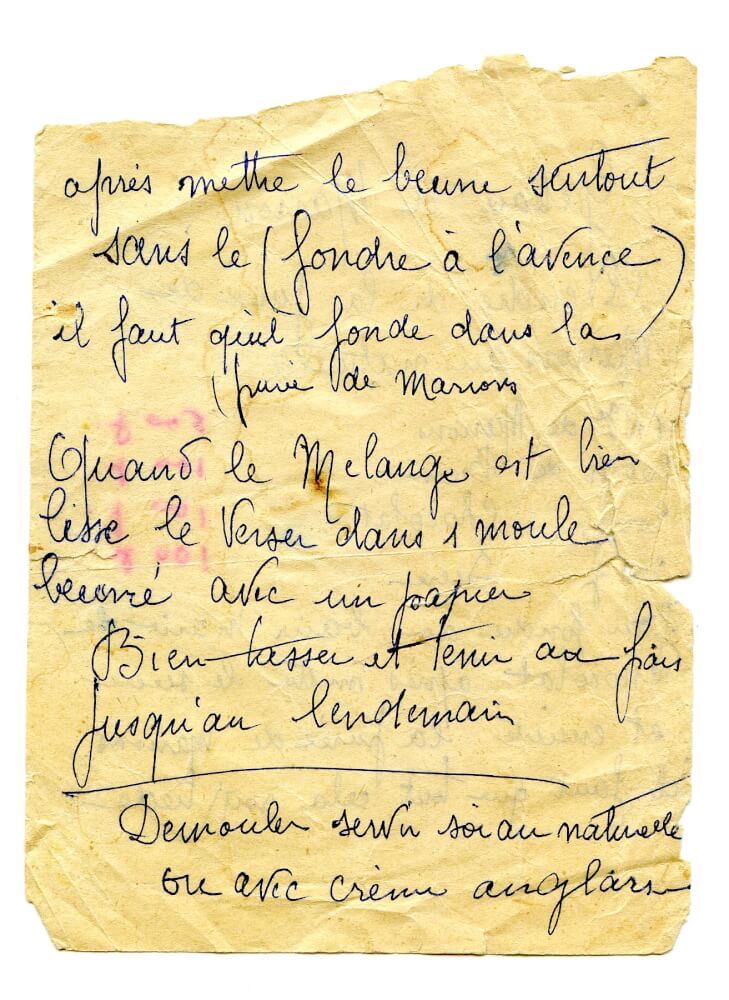 après mettre le beurre surtout
sans le (fondre à l'avence)
il faut qu'il fonde dans la
(purée de Marrons
Quand le Melange est bien
lisse le Verser dans 1 moule
beurré avec un papier
Bien tasser et tenir au frais
jusqu'au lendemain
Demouler servir soi au naturelle
ou avec crème anglaise